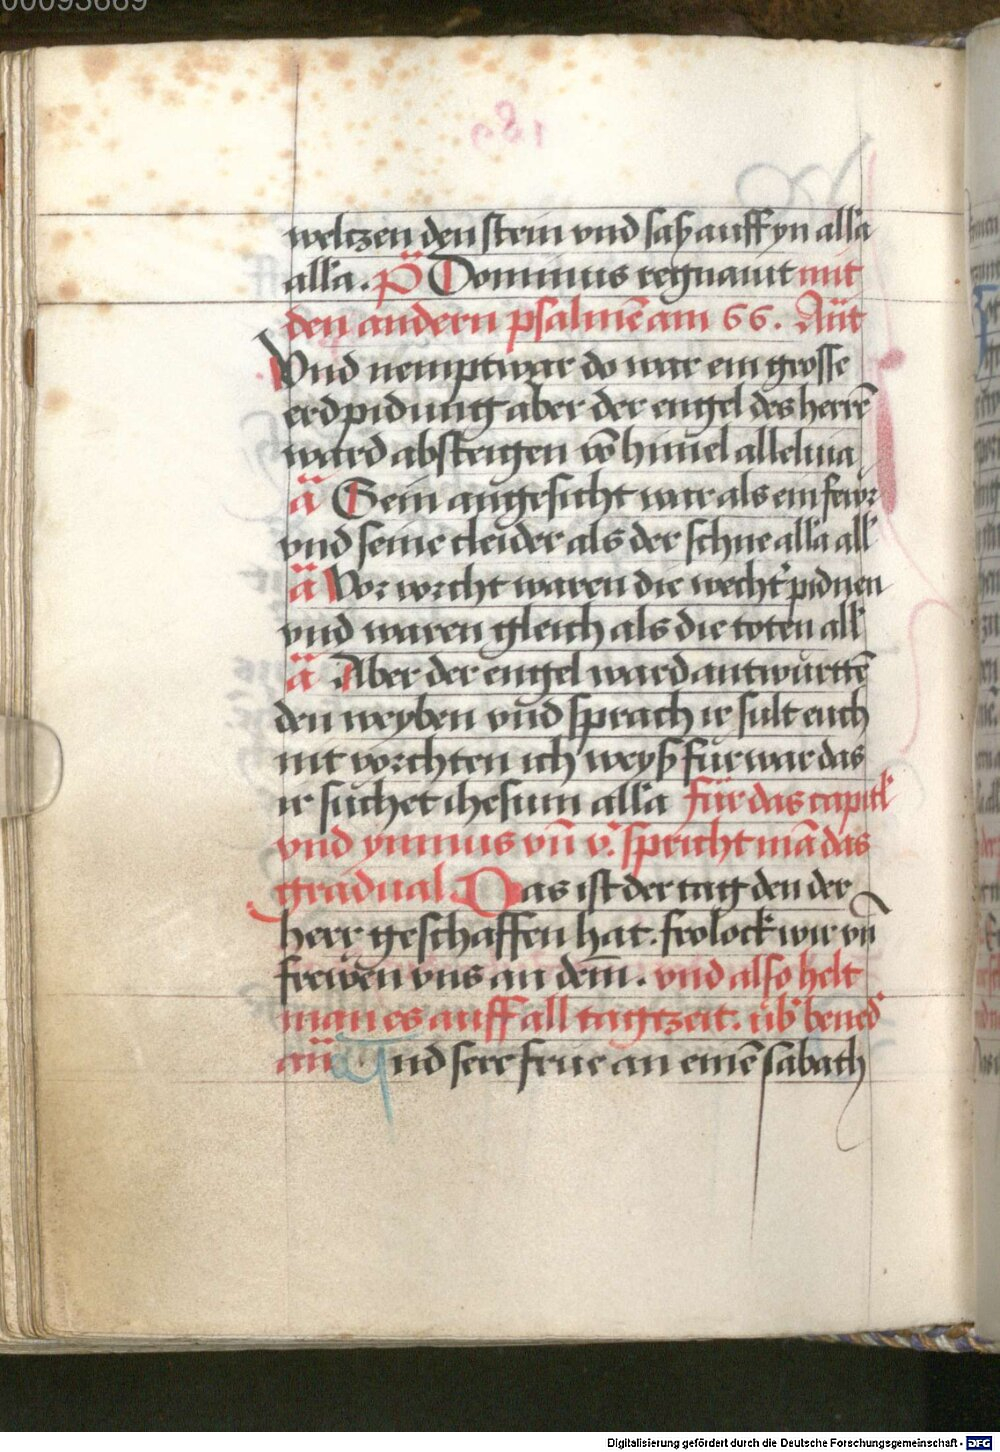 00093669
weltzen den stein vnd saß auff yn all'a
all'a. Ps Dominus regnauit mit
den andern psalmē am 66. Ant
Vnd nempt war do war ein grosse
erdpidung aber der engel des herrē
ward absteigen vō himel alleluia
ā Sein angesicht war als ein fewr
vnd seine cleider als der schne all'a all'
ā Vor vorcht waren die wecht' pidnen
vnd waren gleich als die toten all'
ā Aber der engel ward antwürttē
den weyben vnd sprach ir sult euch
nit vorchten ich weyß fürwar das
ir suchet ihesum all'a für das capitl'
vnd ymnus vn̄ v'. spricht mā das
gradual. Das ist der tag den der
herr geschaffen hat. frolock wir vn̄
frewen vns an dem̄. vnd also helt
man es auff all tagtzeit. üb' bened'
an̄ Vnd sere frue an einē sabath
Digitalisierung gefördert durch die Deutsche Forschungsgemeinschaft - DFG